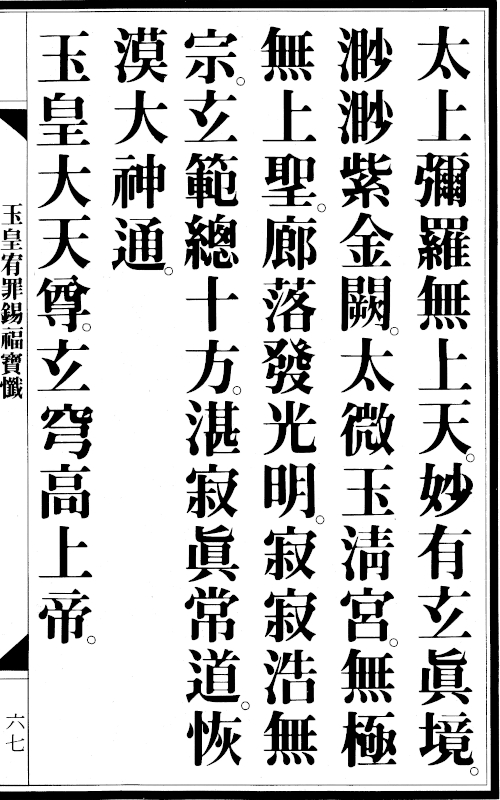 太上彌羅無上天。妙有玄眞境。
渺渺紫金闕。太微玉淸宮。無極
無上聖。廊落發光明。寂寂浩無
宗。玄範總十方。湛寂眞常道。恢
漠大神通。
玉皇大天尊。玄穹高上帝。
玉皇宥罪錫福寶懺
六七